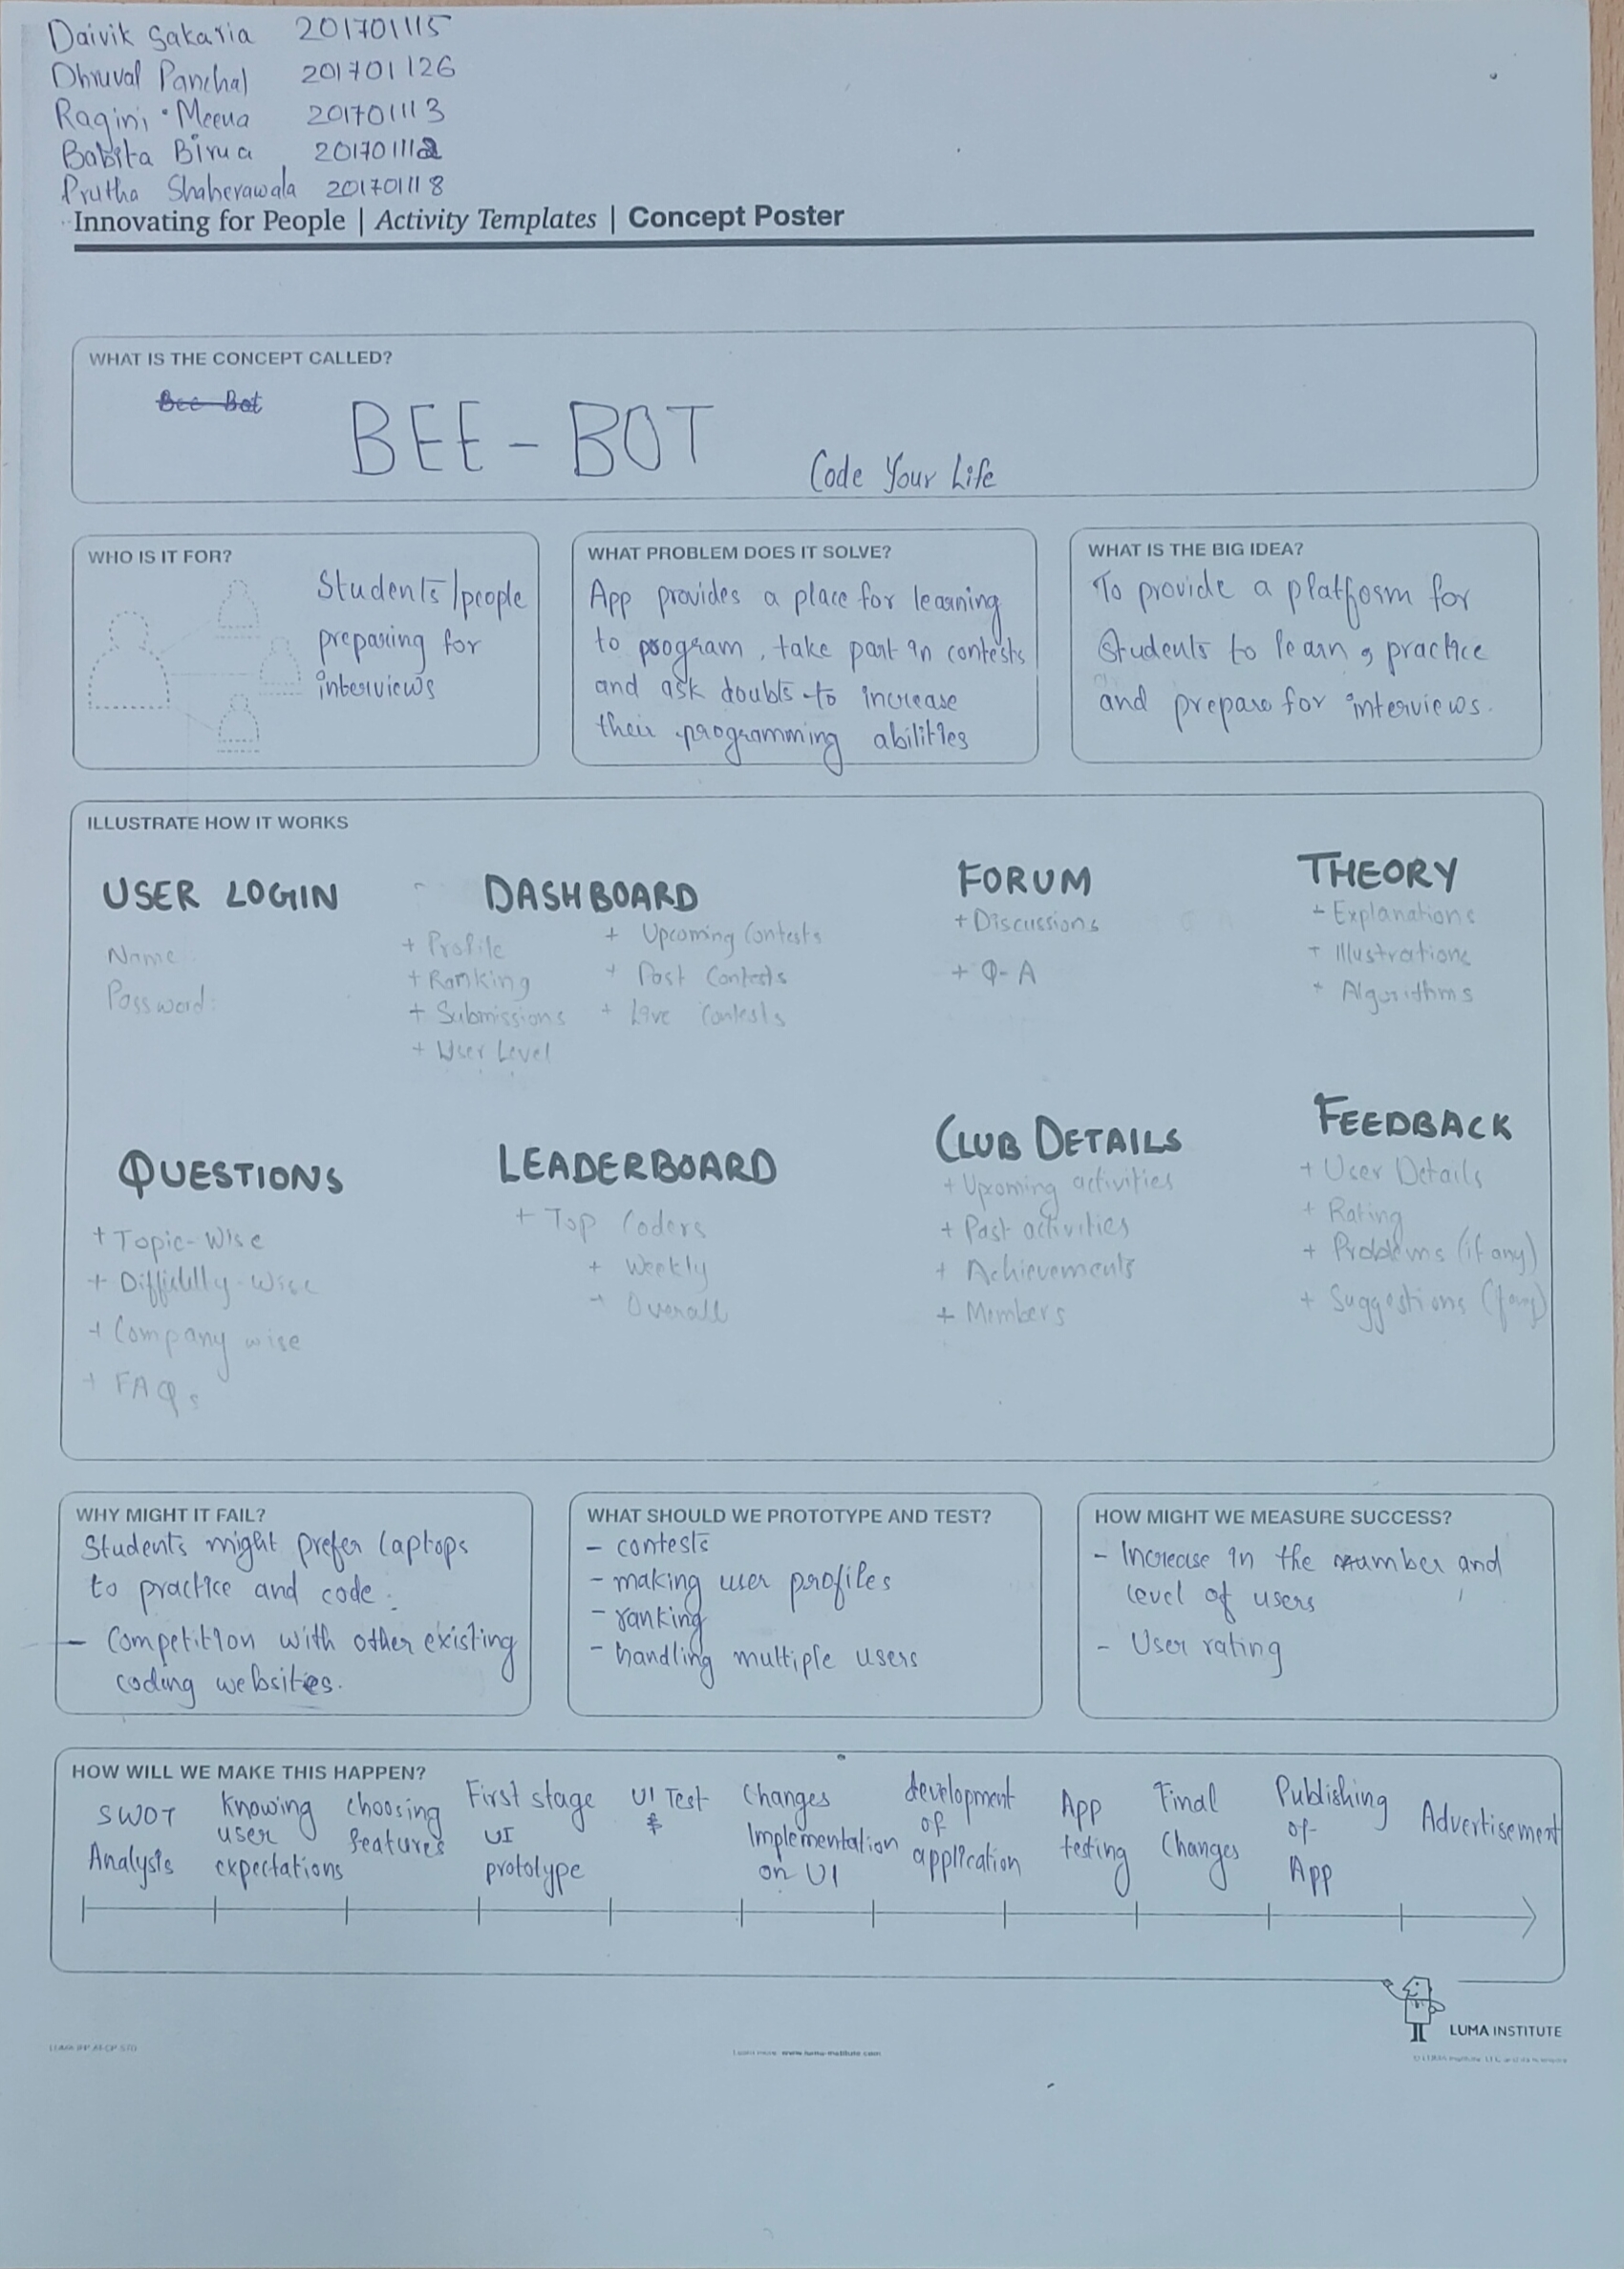 Daivik Sakaria 201701115
Dhruval Panchal 201701126
Ragini Meena 201701113
Babita Birua 201701112
Prutha Shaherawala 201701118
Innovating for People | Activity Templates | Concept Poster
WHAT IS THE CONCEPT CALLED?
Bee-Bot
BEE-BOT
Code Your Life
WHO IS IT FOR?
Students/people
preparing for
interviews
WHAT PROBLEM DOES IT SOLVE?
App provides a place for learning
to program, take part in contests
and ask doubts to increase
their programming abilities
WHAT IS THE BIG IDEA?
To provide a platform for
students to learn, practice
and prepare for interviews.
ILLUSTRATE HOW IT WORKS
USER LOGIN
Name:
Password:
DASHBOARD
+ Profile
+ Ranking
+ Submissions
+ User Level
+ Upcoming Contests
+ Past Contests
+ Live Contests
FORUM
+ Discussions
+ Q-A
THEORY
+ Explanations
+ Illustrations
+ Algorithms
QUESTIONS
+ Topic-Wise
+ Difficulty-Wise
+ Company wise
+ FAQs
LEADERBOARD
+ Top Coders
+ Weekly
+ Overall
CLUB DETAILS
+ Upcoming activities
+ Past activities
+ Achievements
+ Members
FEEDBACK
+ User Details
+ Rating
+ Problems (if any)
+ Suggestions (if any)
WHY MIGHT IT FAIL?
Students might prefer laptops
to practice and code.
- Competition with other existing
coding websites.
WHAT SHOULD WE PROTOTYPE AND TEST?
- contests
- making user profiles
- ranking
- handling multiple users
HOW MIGHT WE MEASURE SUCCESS?
- Increase in the number and
level of users
- User rating
HOW WILL WE MAKE THIS HAPPEN?
SWOT
Analysis
Knowing
user
expectations
choosing
features
First stage
UI
prototype
UI Test
&
Changes
Implementation
on UI
development
of
application
App
testing
Final
Changes
Publishing
of
App
Advertisement
LUMA INSTITUTE
Learn more: www.luma-institute.com